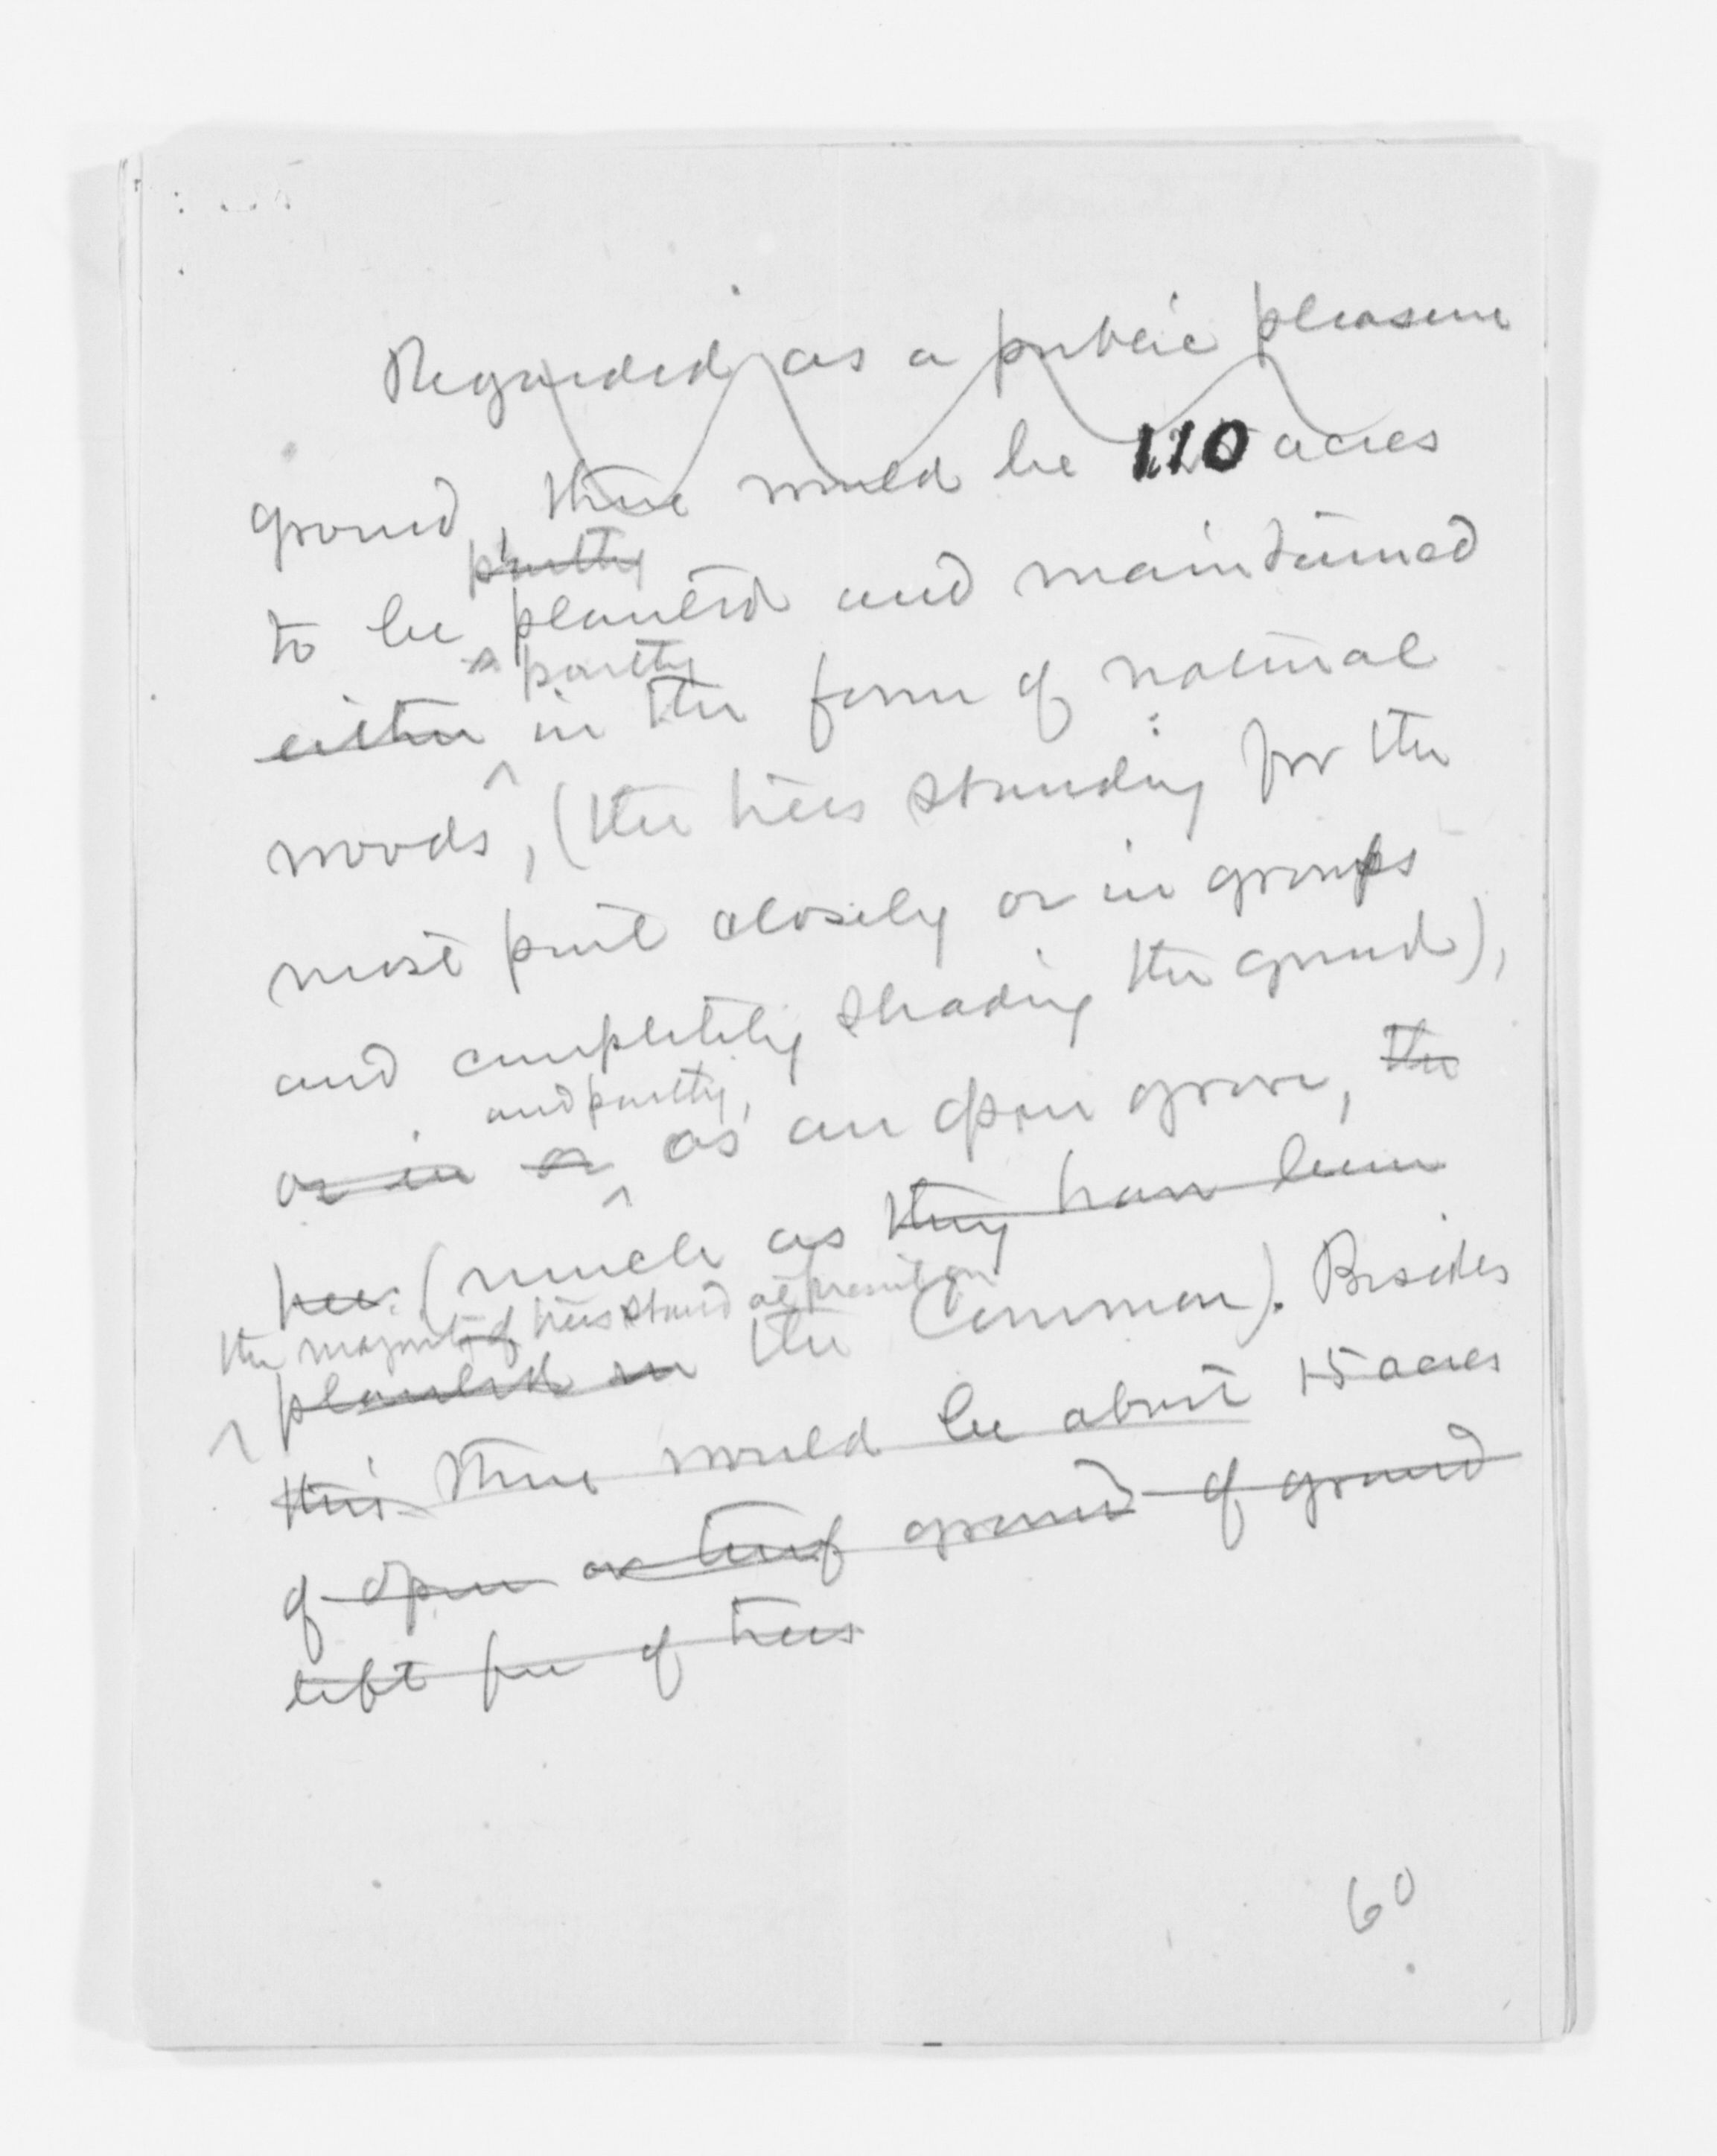 Regarded as a public pleasure
ground, there would be 110 acres
partly
to be planted and maintained
partly
either in the form of natural
woods, (the trees standing for the
most part closely or in groups
and completely shading the ground),
and partly,
or in a as an open grove, the
tree (much as they have been
the majority of trees stand at present on
planted in the Common). Besides
this there would be about 15 acres
of open or turf ground of ground
left free of trees
60